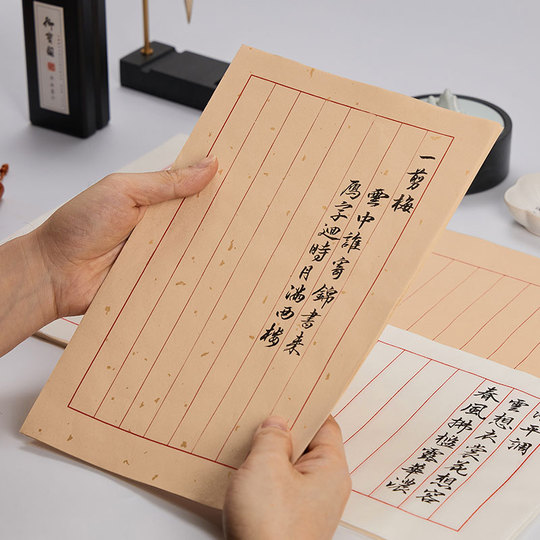 一剪梅
雲中誰寄錦書来
鴈字迴時月滿西楼
平調
雲想衣裳花想容
春風拂檻露華濃